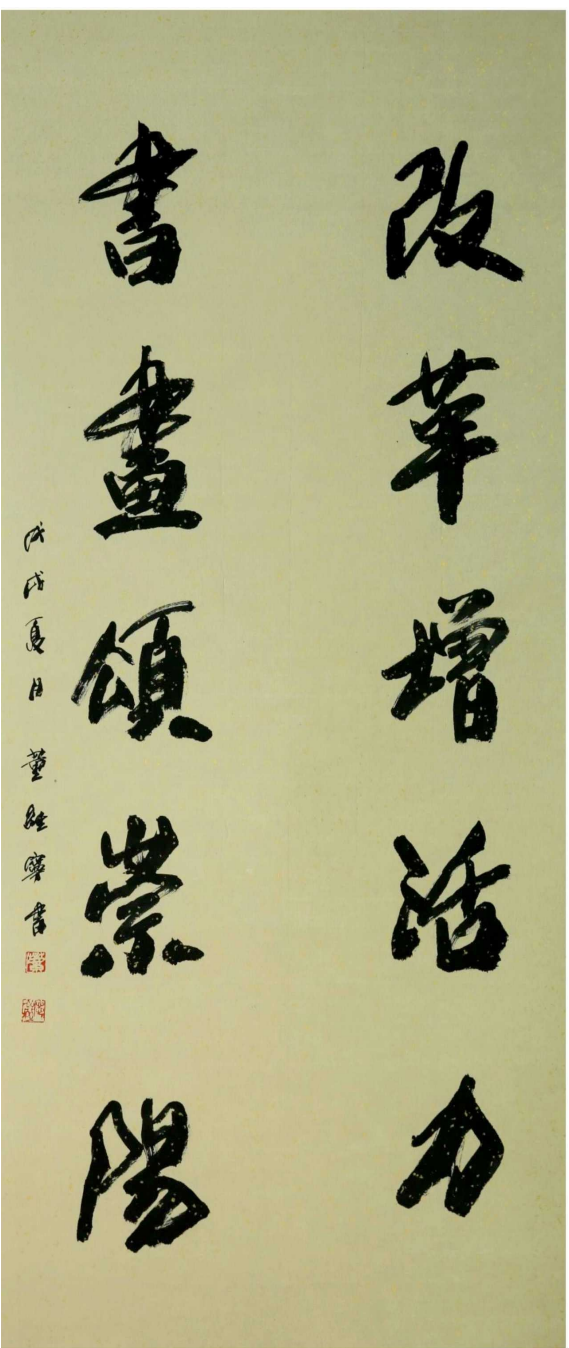 改革增活力
書畫頌崇陽
戊戌夏月 董經寶書